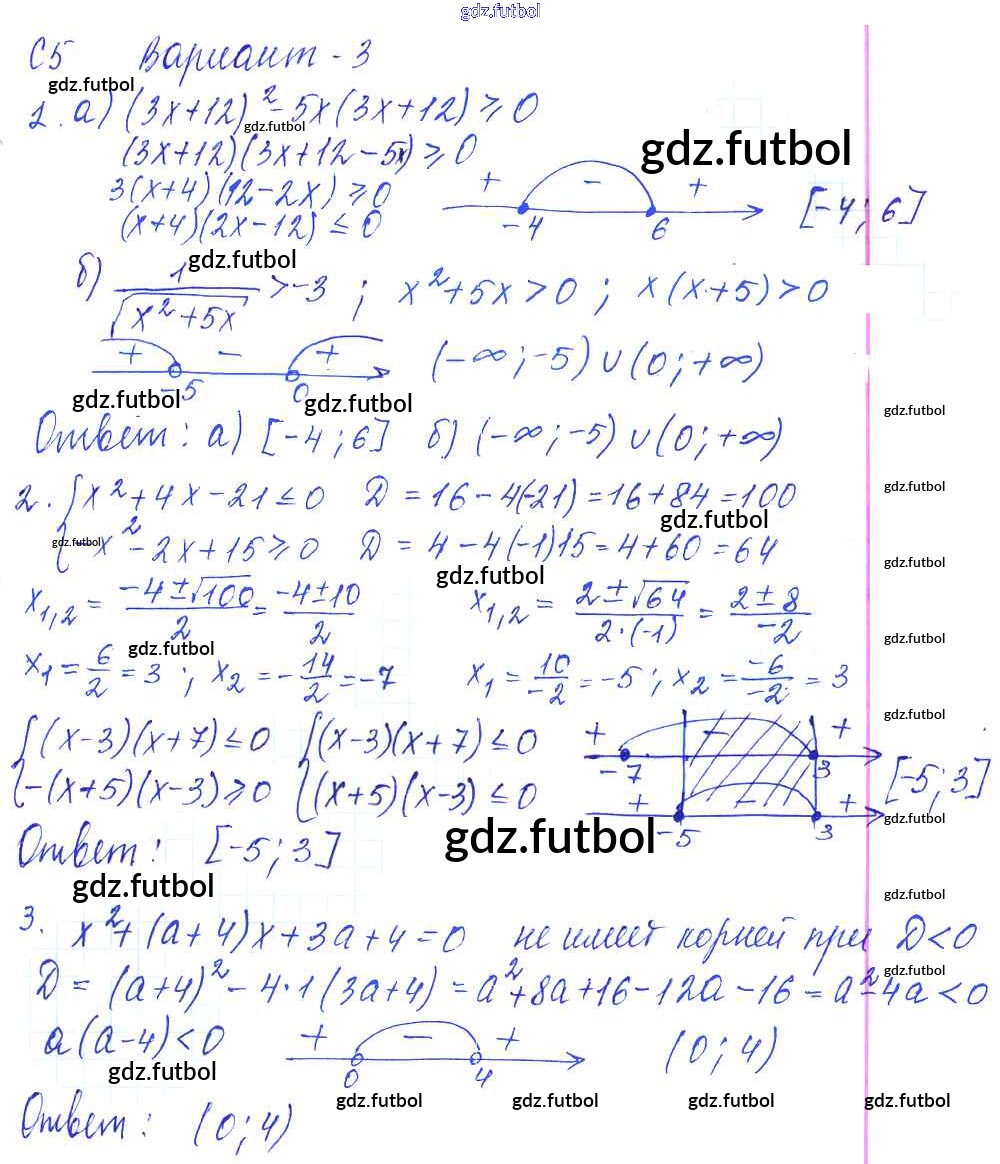 gdz.futbol
С5 Вариант - 3
gdz.futbol
1. а) (3x+12)² - 5x(3x+12) ⩾ 0
gdz.futbol
(3x+12)(3x+12-5x) ⩾ 0
gdz.futbol
3(x+4)(12-2x) ⩾ 0
+ - +
-4 6
[-4; 6]
(x+4)(2x-12) ≤ 0
gdz.futbol
б) 1/√(x²+5x) > -3 ; x²+5x > 0 ; x(x+5) > 0
+ - +
-5 0
(-∞; -5) ∪ (0; +∞)
gdz.futbol
gdz.futbol
gdz.futbol
Ответ: а) [-4; 6] б) (-∞; -5) ∪ (0; +∞)
gdz.futbol
2. { x²+4x-21 ≤ 0 D = 16-4(-21) = 16+84 = 100
gdz.futbol
{ -x²-2x+15 ⩾ 0 D = 4-4(-1)15 = 4+60 = 64
gdz.futbol
gdz.futbol
gdz.futbol
x₁,₂ = (-4±√100)/2 = (-4±10)/2 x₁,₂ = (2±√64)/(2·(-1)) = (2±8)/-2
gdz.futbol
gdz.futbol
x₁ = 6/2 = 3 ; x₂ = -14/2 = -7 x₁ = 10/-2 = -5 ; x₂ = -6/-2 = 3
gdz.futbol
{ (x-3)(x+7) ≤ 0 { (x-3)(x+7) ≤ 0
{ -(x+5)(x-3) ⩾ 0 { (x+5)(x-3) ≤ 0
+ - +
-7 3
+ - +
-5 3
[-5; 3]
gdz.futbol
gdz.futbol
Ответ: [-5; 3]
gdz.futbol
gdz.futbol
3. x²+(a+4)x+3a+4=0 не имеет корней при D<0
gdz.futbol
D = (a+4)² - 4·1(3a+4) = a²+8a+16-12a-16 = a²-4a<0
a(a-4)<0
+ - +
0 4
(0; 4)
gdz.futbol
gdz.futbol gdz.futbol gdz.futbol gdz.futbol
Ответ: (0; 4)